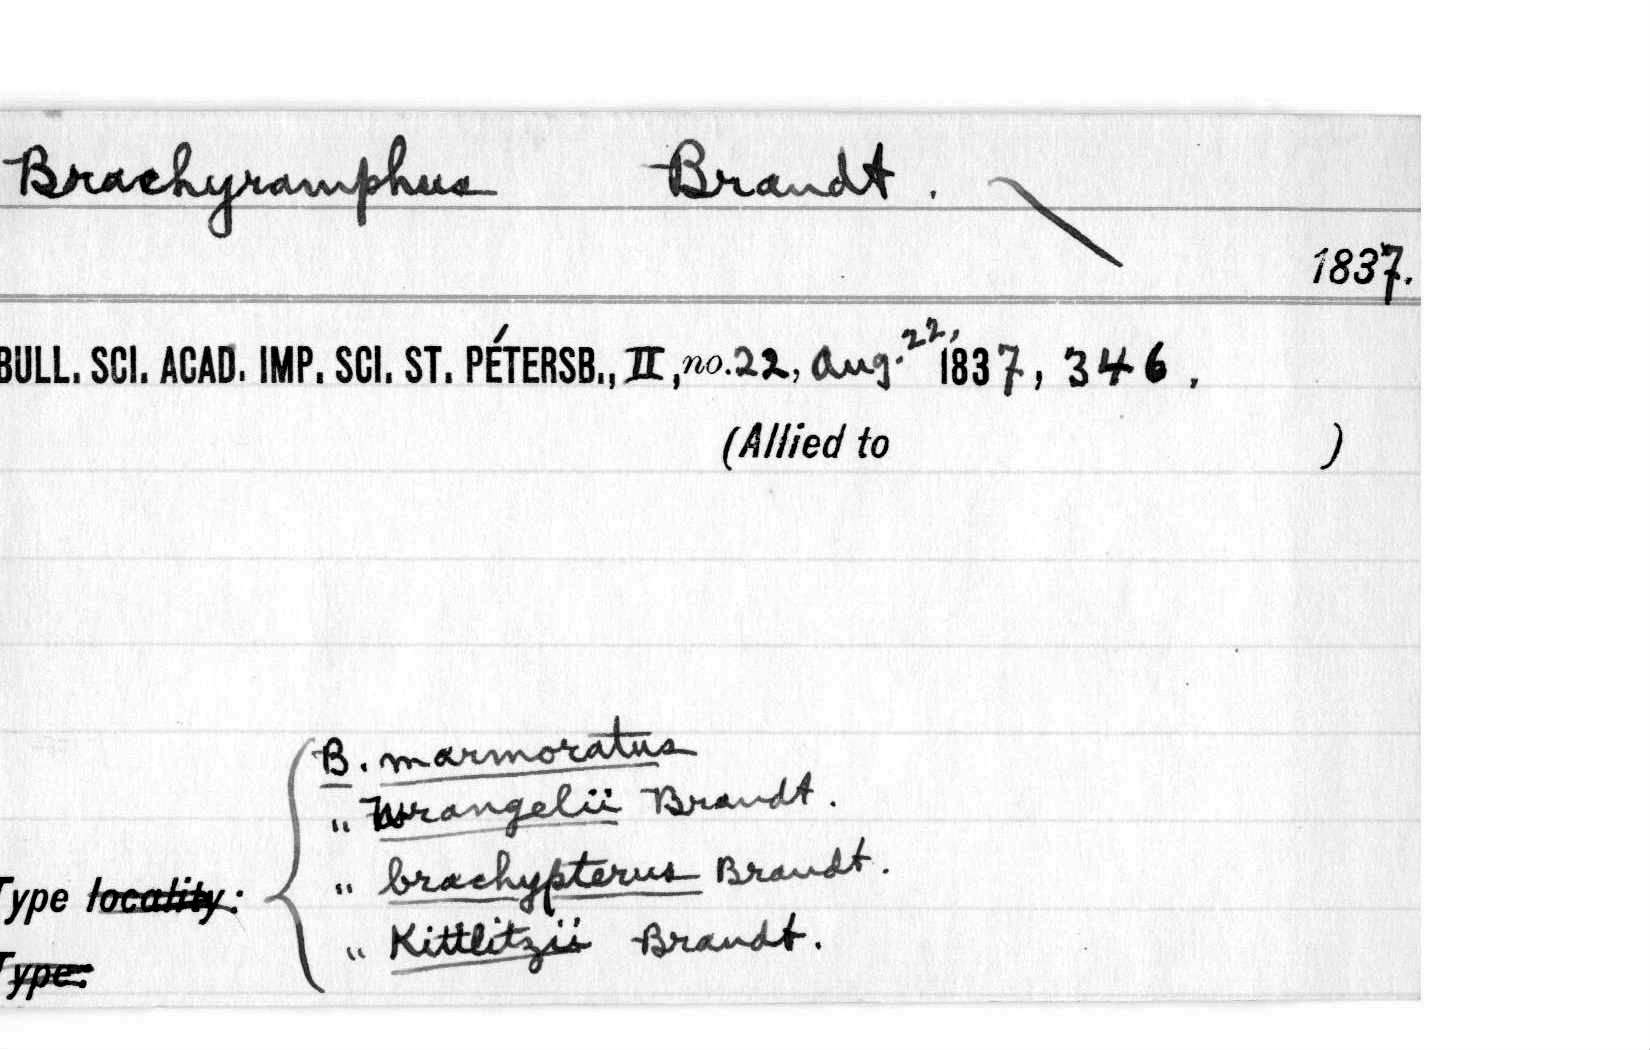 Brachyramphus Brandt.
1837.
BULL. SCI. ACAD. IMP. SCI. ST. PÉTERSB., II, no. 22, Aug. 22, 1837, 346.
(Allied to )
B. marmoratus
" Wrangelii Brandt.
" brachypterus Brandt.
Type locality:
" Kittlitzii Brandt.
Type: